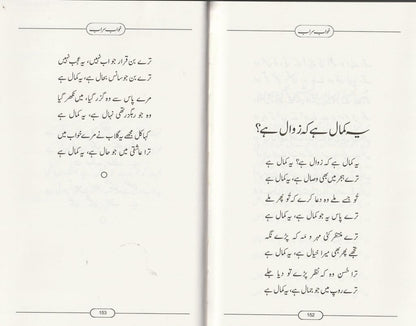 خواب سراب
یہ کمال ہے کہ زوال ہے؟
یہ کمال ہے کہ زوال ہے؟ یہ کمال ہے
ترے ہجر میں بھی وصال ہے، یہ کمال ہے
تُو جسے ملے وہ دعا کرے کہ تُو پھر ملے
ترے پاس یہ جو کمال ہے، یہ کمال ہے
ترے منتظر کئی مہر و مہ کہ پڑے نگہ
تجھے پھر بھی میرا خیال ہے، یہ کمال ہے
ترا حُسن وہ کہ نظر پڑے تو دیا جلے
ترے روپ میں جو جمال ہے، یہ کمال ہے
152
خواب سراب
ترے بن قرار جو اب نہیں، یہ عجب نہیں
ترے بن جو سانس بحال ہے، یہ کمال ہے
مرے پاس سے وہ گزر گیا، میں نکھر گیا
وہ جو رہگزر تھی نہال ہے، یہ کمال ہے
کہا کل مجھے یہ گلاب نے مرے خواب میں
ترا عاشقی میں جو حال ہے، یہ کمال ہے
153